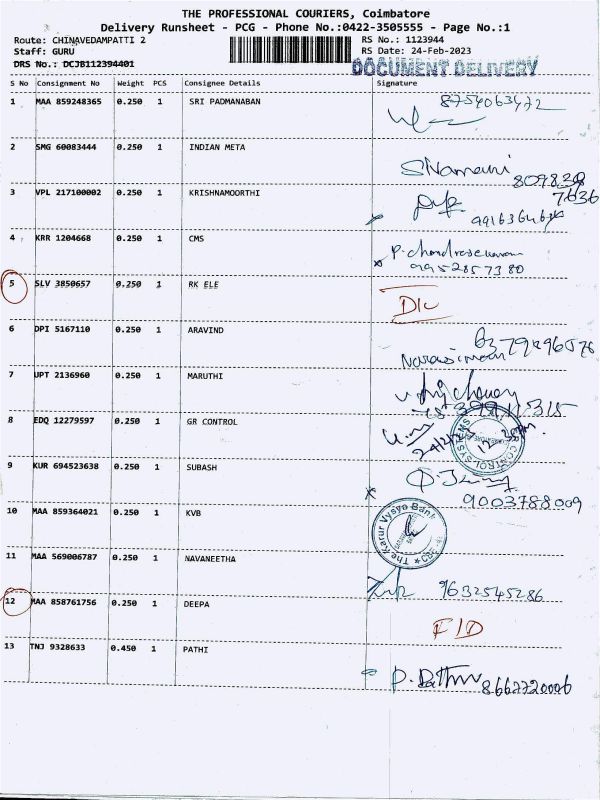 THE PROFESSIONAL COURIERS, Coimbatore
Delivery Runsheet - PCG - Phone No.:0422-3505555 - Page No.:1
Route: CHINAVEDAMPATTI 2 RS No.: 1123944
Staff: GURU RS Date: 24-Feb-2023
DRS No.: DCJB112394401 DOCUMENT DELIVERY
S No Consignment No Weight PCS Consignee Details Signature
1 MAA 859248365 0.250 1 SRI PADMANABAN 8754063472
2 SMG 60083444 0.250 1 INDIAN META
3 VPL 217100002 0.250 1 KRISHNAMOORTHI
4 KRR 1204668 0.250 1 CMS P. chandrasekaran
9952857380
5 SLV 3850657 0.250 1 RK ELE D/L
6 DPI 5167110 0.250 1 ARAVIND
7 UPT 2136960 0.250 1 MARUTHI
8 EDQ 12279597 0.250 1 GR CONTROL
9 KUR 694523638 0.250 1 SUBASH
9003788009
10 MAA 859364021 0.250 1 KVB The Karur Vysya Bank
11 MAA 569006787 0.250 1 NAVANEETHA
9632545286
12 MAA 858761756 0.250 1 DEEPA F/D
13 TNJ 9328633 0.450 1 PATHI